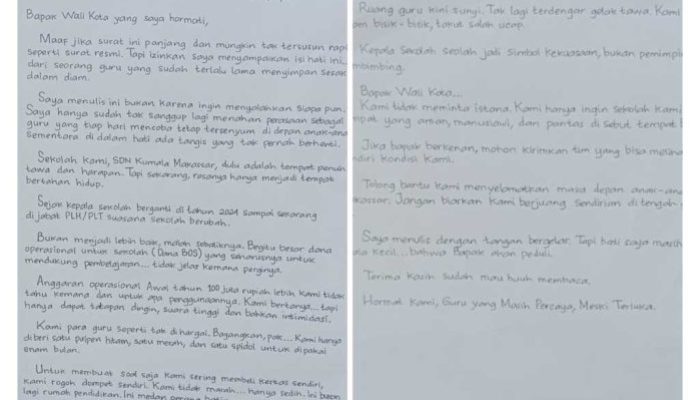 Bapak Wali Kota yang saya hormati,
Maaf jika surat ini panjang dan mungkin tak tersusun rapi
seperti surat resmi. Tapi izinkan saya menyampaikan isi hati ini..
dari seorang guru yang sudah terlalu lama menyimpan sesak
dalam diam.
Saya menulis ini bukan karena ingin menyalahkan siapa pun.
Saya hanya sudah tak sanggup lagi menahan perasaan sebagai
guru yang tiap hari mencoba tetap tersenyum di depan anak-anak
sementara di dalam hati ada tangis yang tak pernah berhenti.
Sekolah kami, SDN Kumala Makassar, dulu adalah tempat penuh
tawa dan harapan. Tapi sekarang, rasanya hanya menjadi tempat
bertahan hidup.
Sejak kepala sekolah berganti di tahun 2024 sampai sekarang
di jabat PLH/PLT suasana sekolah berubah.
Bukan menjadi lebih baik, malah sebaliknya. Begitu besar dana
operasional untuk sekolah (Dana BOS) yang seharusnya untuk
mendukung pembelajaran... tidak jelas kemana perginya.
Anggaran operasional Awal tahun 100 juta rupiah lebih kami tidak
tahu kemana dan untuk apa penggunaannya. Kami bertanya... tapi
hanya dapat tatapan dingin, suara tinggi dan bahkan intimidasi.
Kami para guru seperti tak di hargai. Bayangkan, pak... Kami hanya
di beri satu pulpen hitam, satu merah, dan satu spidol untuk di pakai
enam bulan.
Untuk membuat soal saja kami sering membeli kertas sendiri,
kami rogoh dompet sendiri. Kami tidak marah... hanya sedih. Ini bukan
lagi rumah pendidikan. Ini medan perang
Ruang guru kini sunyi. Tak lagi terdengar gelak tawa. Kami
pen bisik-bisik, takut salah ucap.
Kepala Sekolah seolah jadi simbol kekuasaan, bukan pemimpin
mbimbing.
Bapak Wali Kota...
Kami tidak meminta istana. Kami hanya ingin sekolah kami
mpat yang aman, manusiawi, dan pantas di sebut tempat b
Jika bapak berkenan, mohon kirimkan tim yang bisa meliha
ndiri kondisi kami.
Tolong bantu kami menyelamatkan masa depan anak-ana
kassar. Jangan biarkan kami berjuang sendirian di tengah
Saya menulis dengan tangan bergetar. Tapi hati saya masih
kecil... bahwa Bapak akan peduli.
Terima kasih sudah mau membaca.
Hormat kami, Guru yang Masih Percaya, Meski Terluka.